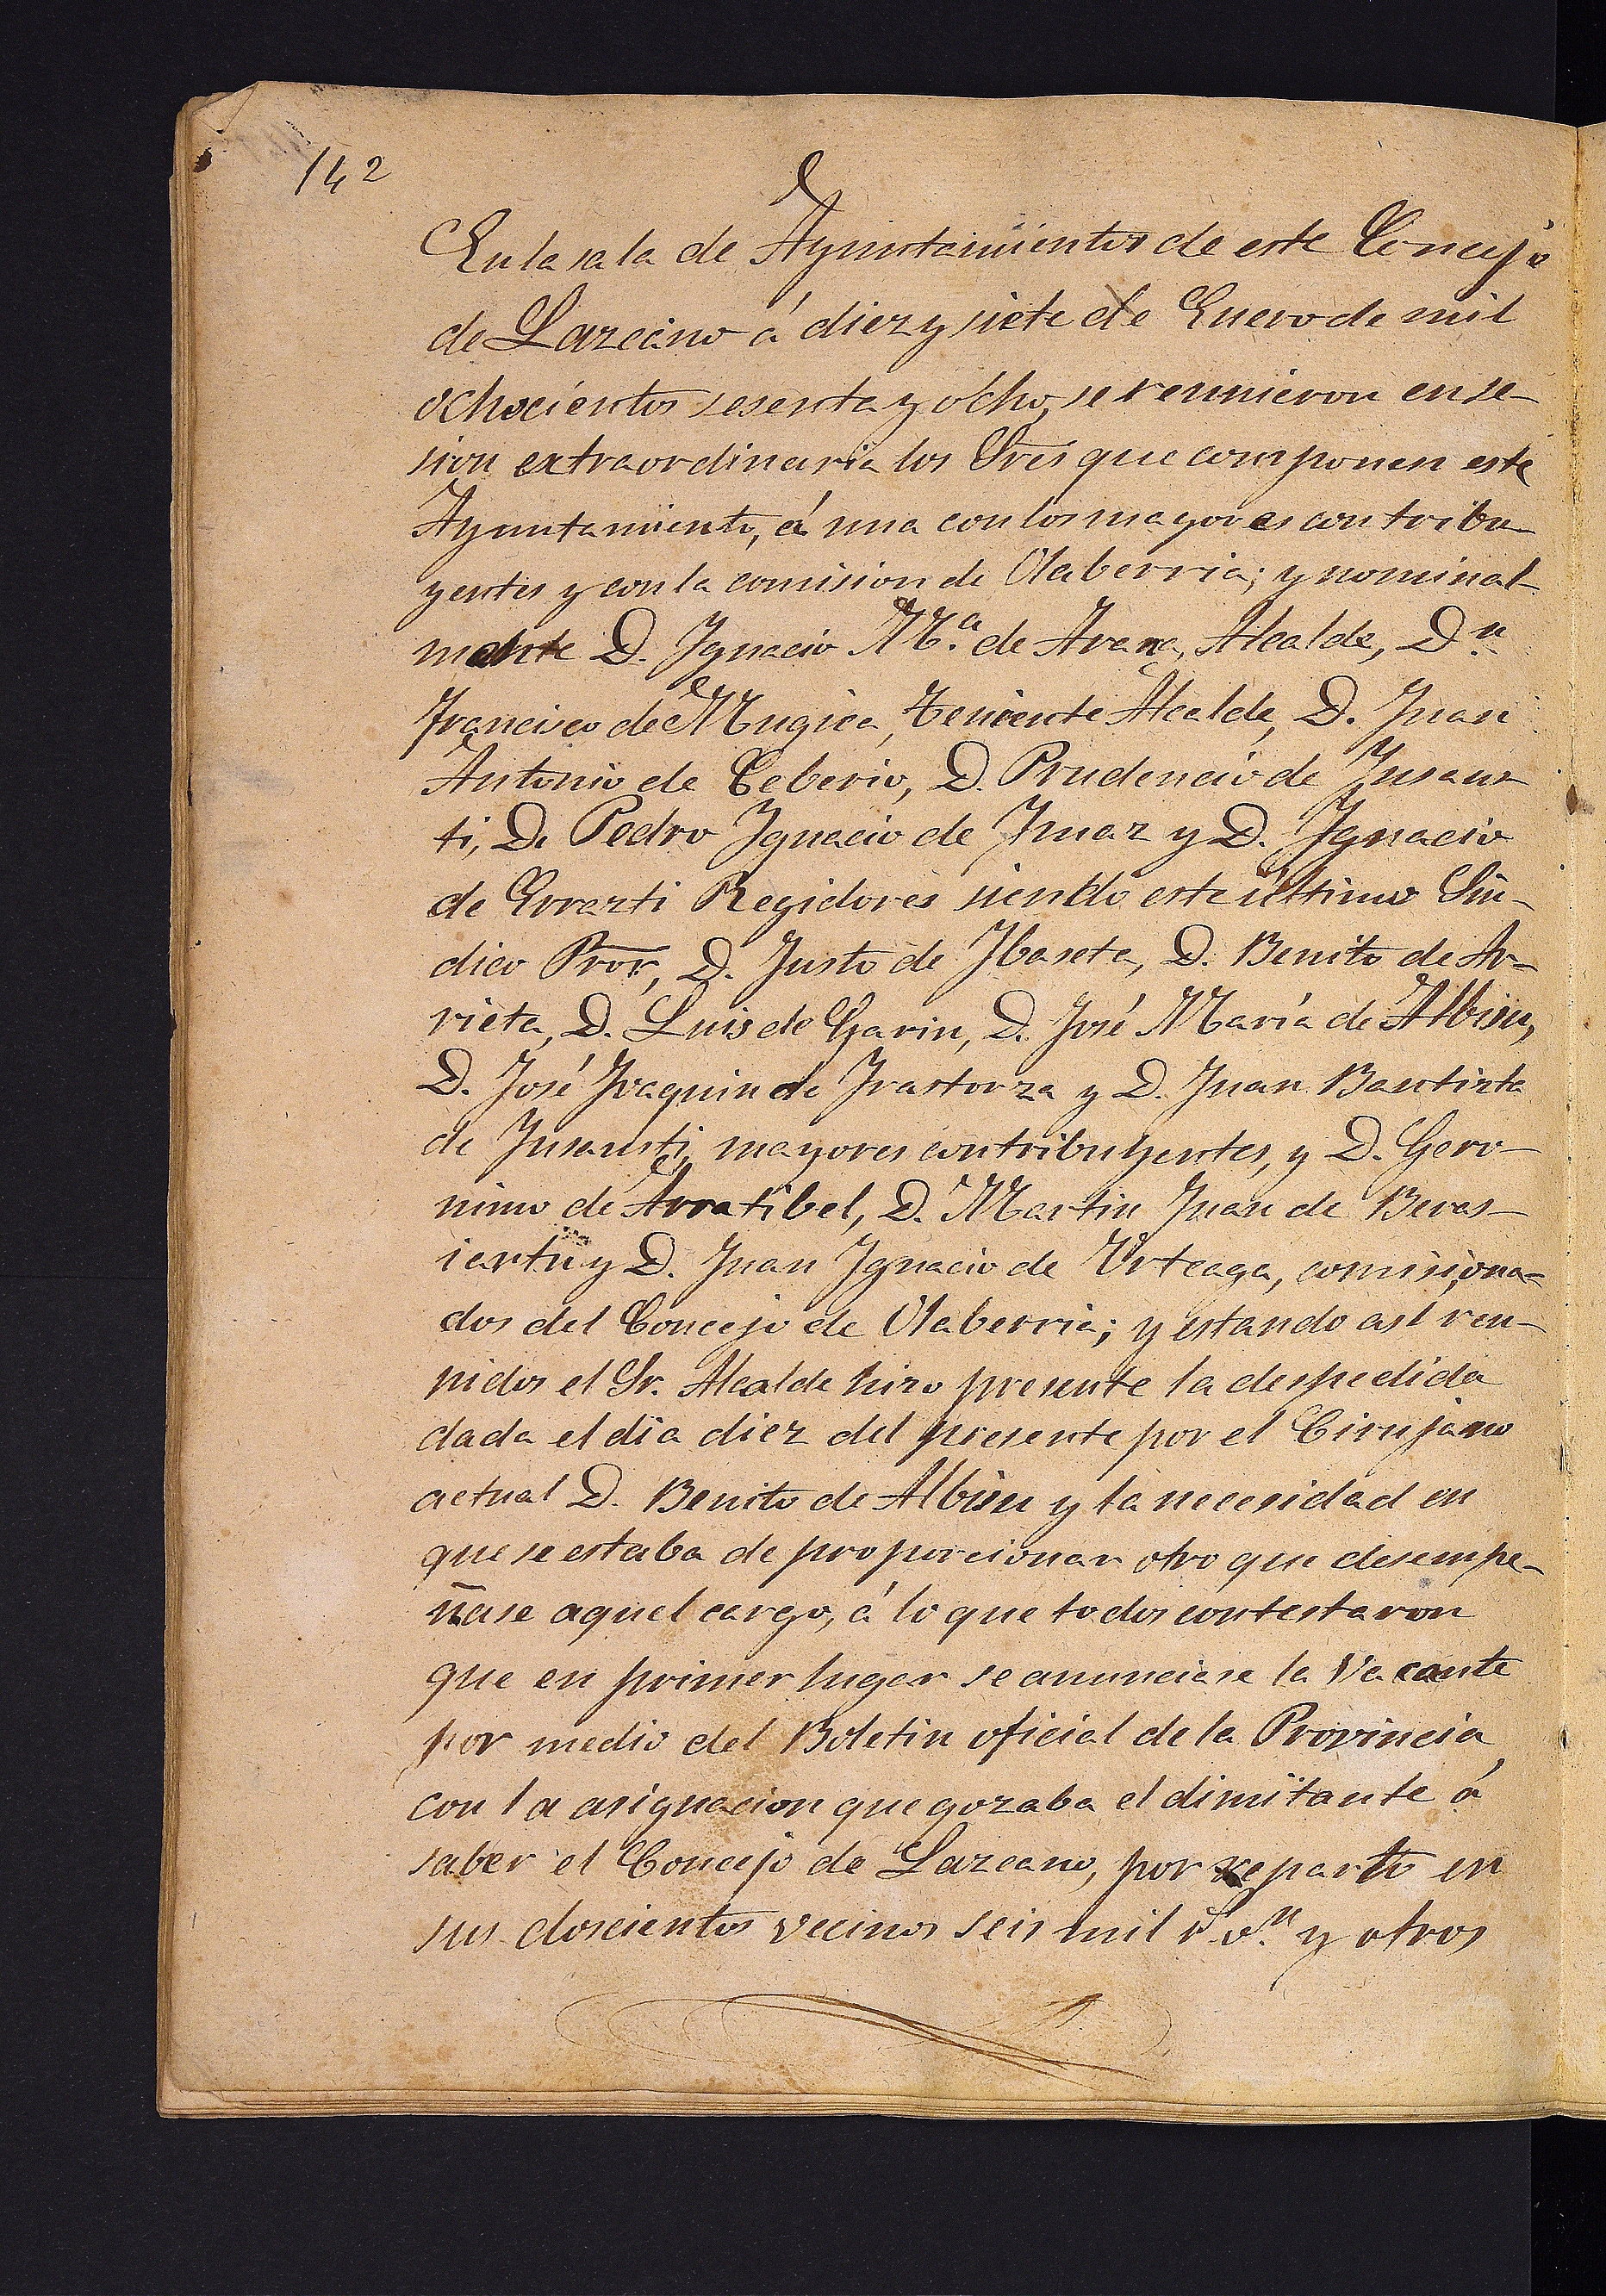 142
En la sala de Ayuntamientos de este Concejo
de Lazcano á diez y siete de Enero de mil
ochocientos sesenta y ocho, se reunieron en se-
sion extraordinaria los Sres que componen este
Ayuntamiento, á una con los mayores contribu-
yentes y con la comision de Olaberria; y nominal-
mente D. Ignacio M.ª de Arana, Alcalde, D.n
Francisco de Mugica, Teniente Alcalde, D. Juan
Antonio de Ceberio, D. Prudencio de Insaus-
ti, D. Pedro Ignacio de Imaz y D. Ignacio
de Errazti Regidores siendo este último Sín-
dico Pror, D. Justo de Ibaseta, D. Benito de Ar-
rieta, D. Luis de Garin, D. José María de Albisu,
D. José Joaquin de Irastorza y D. Juan Bautista
de Insausti, mayores contribuyentes, y D. Gero-
nimo de Arratibel, D. Martin Juan de Beras-
iartu y D. Juan Ignacio de Urteaga, comisiona-
dos del Concejo de Olaberria; y estando así reu-
nidos el Sr. Alcalde hizo presente la despedida
dada el dia diez del presente por el Cirujano
actual D. Benito de Albisu y la necesidad en
que se estaba de proporcionar otro que desempe-
ñase aquel cargo, á lo que todos contestaron
que en primer lugar se anunciase la Vacante
por medio del Boletin oficial de la Provincia
con la asignacion que gozaba el dimitante á
saber el Concejo de Lazcano, por reparto en
sus doscientos vecinos seis mil r.s v.n y otros